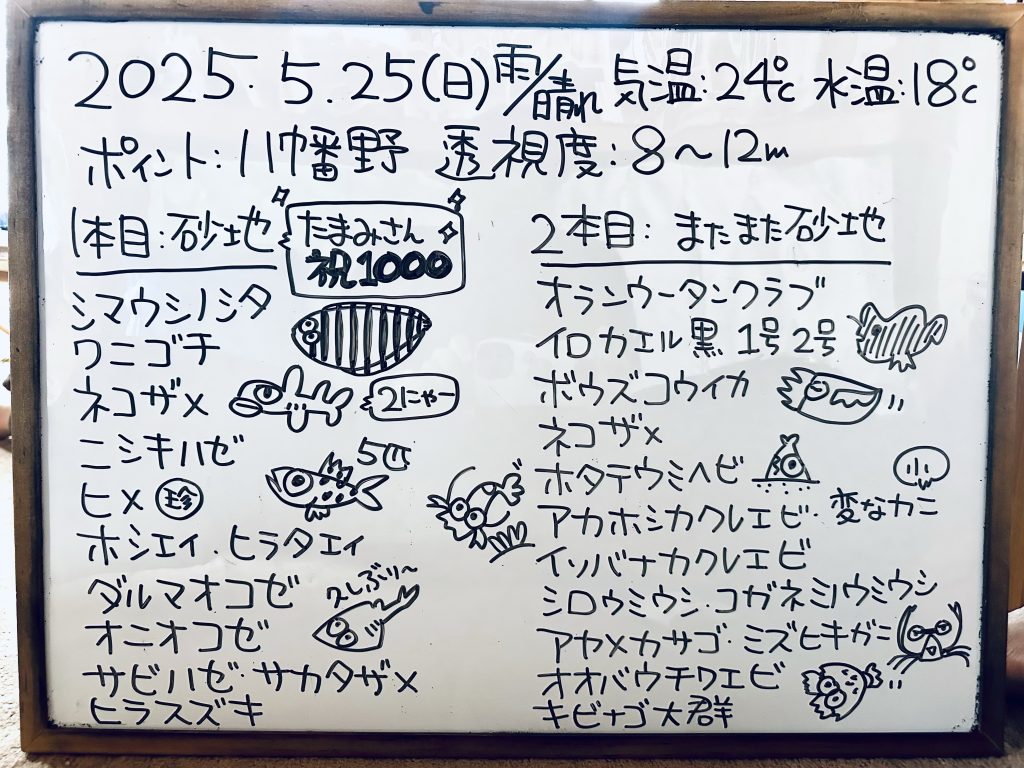 2025.5.25(日)雨/晴れ 気温:24℃ 水温:18℃
ポイント:八幡野 透視度:8〜12m
1本目:砂地
たまみさん
祝1000
シマウシノシタ
ワニゴチ
ネコザメ
2にゃー
ニシキハゼ
5匹
ヒメ 珍
ホシエイ.ヒラタエイ
ダルマオコゼ
オニオコゼ
久しぶり〜
サビハゼ・サカタザメ
ヒラスズキ
2本目:またまた砂地
オランウータンクラブ
イロカエル黒 1号2号
ボウズコウイカ
ネコザメ
ホタテウミヘビ
小
アカホシカクレエビ・変なカニ
イソバナカクレエビ
シロウミウシ.コガネミノウミウシ
アヤメカサゴ・ミズヒキガニ
オオバウチワエビ
キビナゴ大群